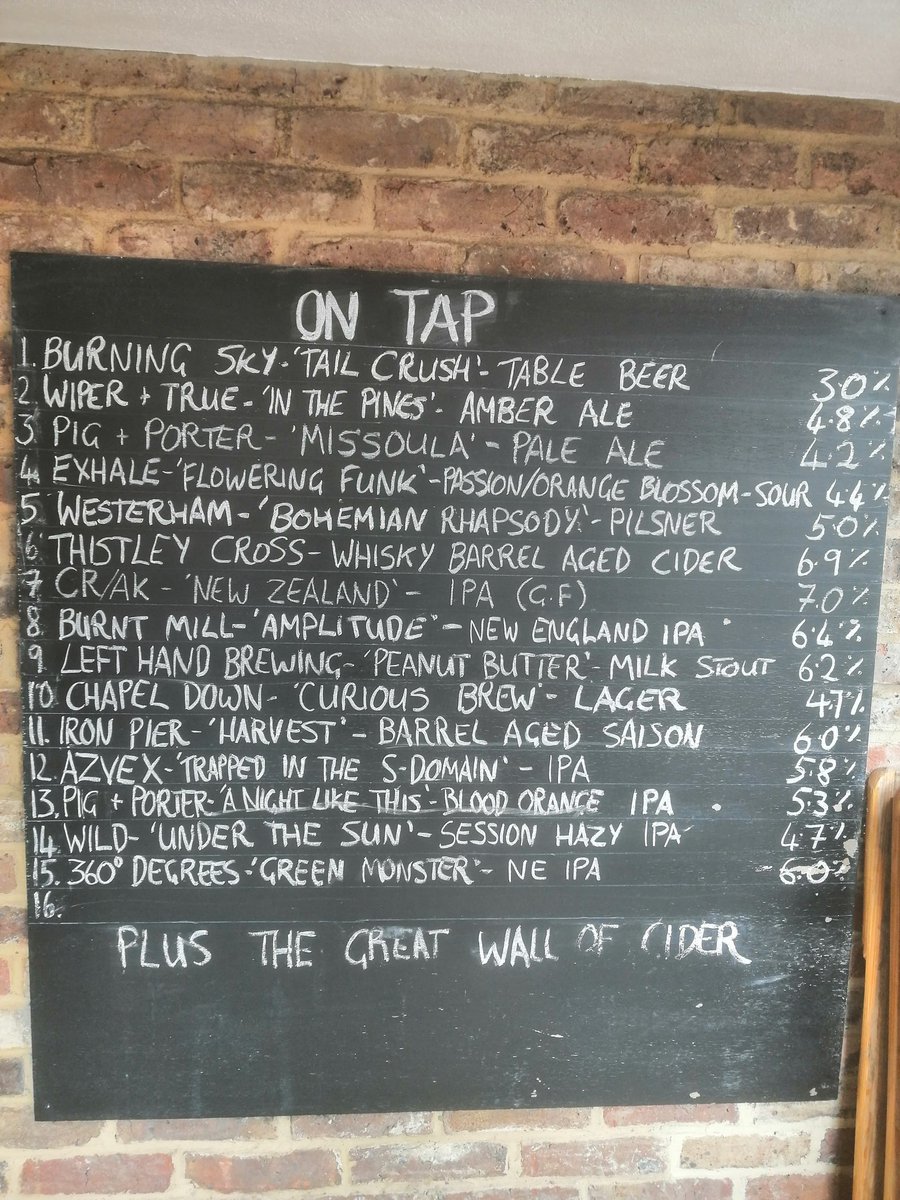 ON TAP
1. BURNING SKY-'TAIL CRUSH'- TABLE BEER 3.0%
2 WIPER + TRUE-'IN THE PINES'- AMBER ALE 4.8%
3 PIG + PORTER-'MISSOULA'- PALE ALE 4.2%
4 EXHALE-'FLOWERING FUNK'-PASSION/ORANGE BLOSSOM-SOUR 4.4%
5 WESTERHAM-'BOHEMIAN RHAPSODY'- PILSNER 5.0%
6 THISTLEY CROSS-WHISKY BARREL AGED CIDER 6.9%
7 CR/AK - 'NEW ZEALAND'- IPA (G.F) 7.0%
8 BURNT MILL-'AMPLITUDE'-NEW ENGLAND IPA 6.4%
9 LEFT HAND BREWING-'PEANUT BUTTER'- MILK STOUT 6.2%
10 CHAPEL DOWN-'CURIOUS BREW'- LAGER 4.7%
11. IRON PIER-'HARVEST'- BARREL AGED SAISON 6.0%
12. AZVEX-'TRAPPED IN THE S-DOMAIN'- IPA 5.8%
13. PIG + PORTER-'A NIGHT LIKE THIS'- BLOOD ORANGE IPA 5.3%
14. WILD-'UNDER THE SUN'- SESSION HAZY IPA 4.7%
15. 360° DEGREES-'GREEN MONSTER'- NE IPA 6.0%
16.
PLUS THE GREAT WALL OF CIDER